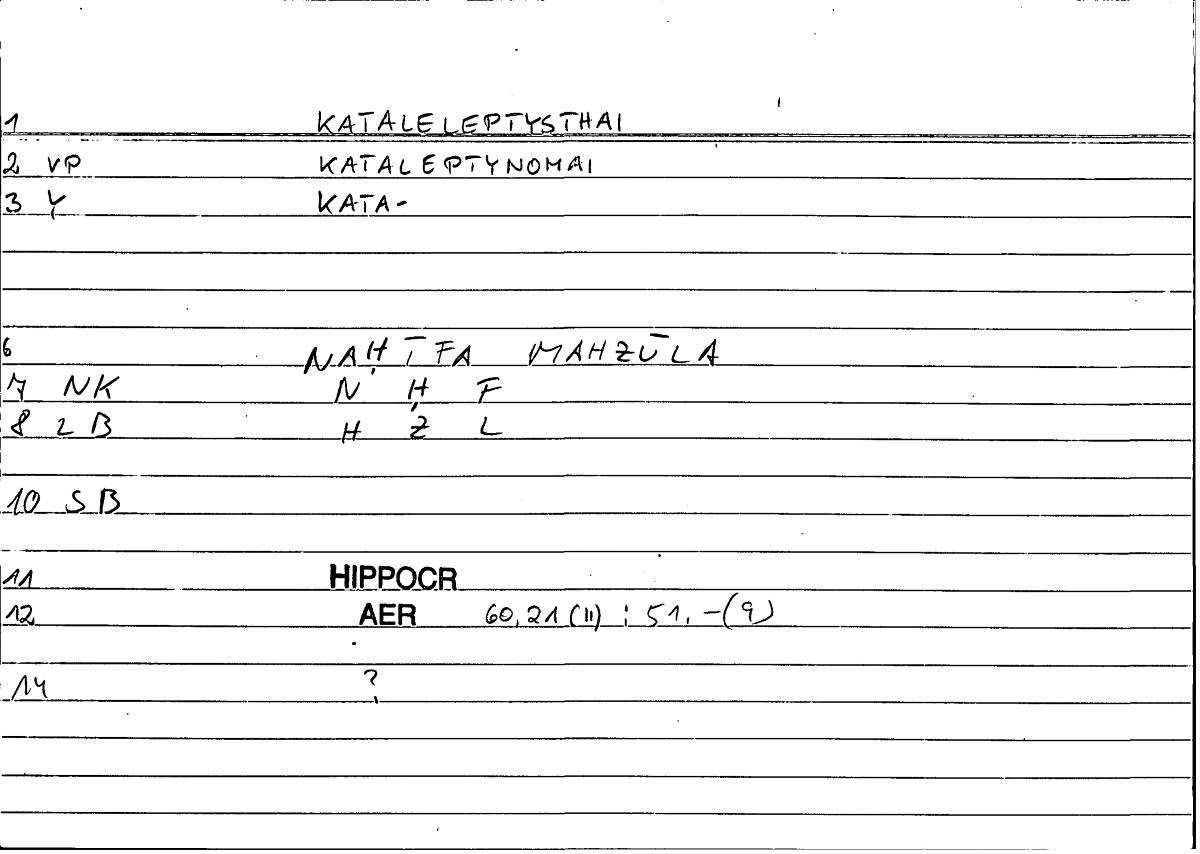 1 KATALELEPTYSTHAI
2 VP KATALEPTYNOMAI
3 Y KATA-
6 NAḤĪFA MAHZŪLA
7 NK N Ḥ F
8 2B H Z L
10 SB
11 HIPPOCR
12 AER 60,21 (11) ; 51,-(9)
14 ?